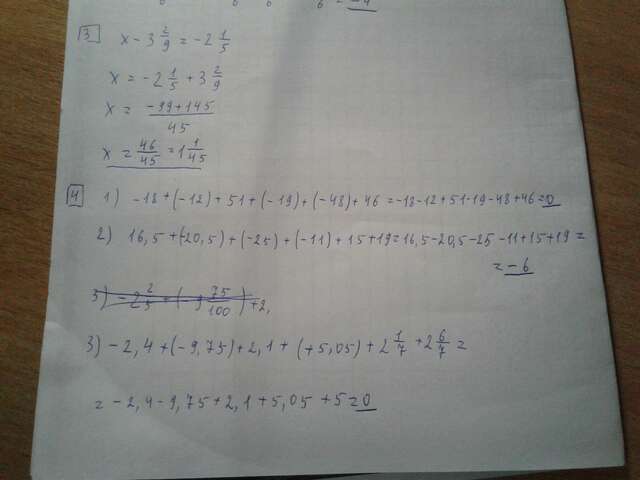 = -4
3
x - 3 2/9 = -2 1/5
x = -2 1/5 + 3 2/9
x = (-99+145)/45
x = 46/45 = 1 1/45
4 1) -18+(-12)+51+(-19)+(-48)+46=-18-12+51-19-48+46=0
2) 16,5+(-20,5)+(-25)+(-11)+15+19=16,5-20,5-25-11+15+19=
=-6
3) -2,4+(-9,75)+2,1+(+5,05)+2 1/7+2 6/7=
=-2,4-9,75+2,1+5,05+5=0